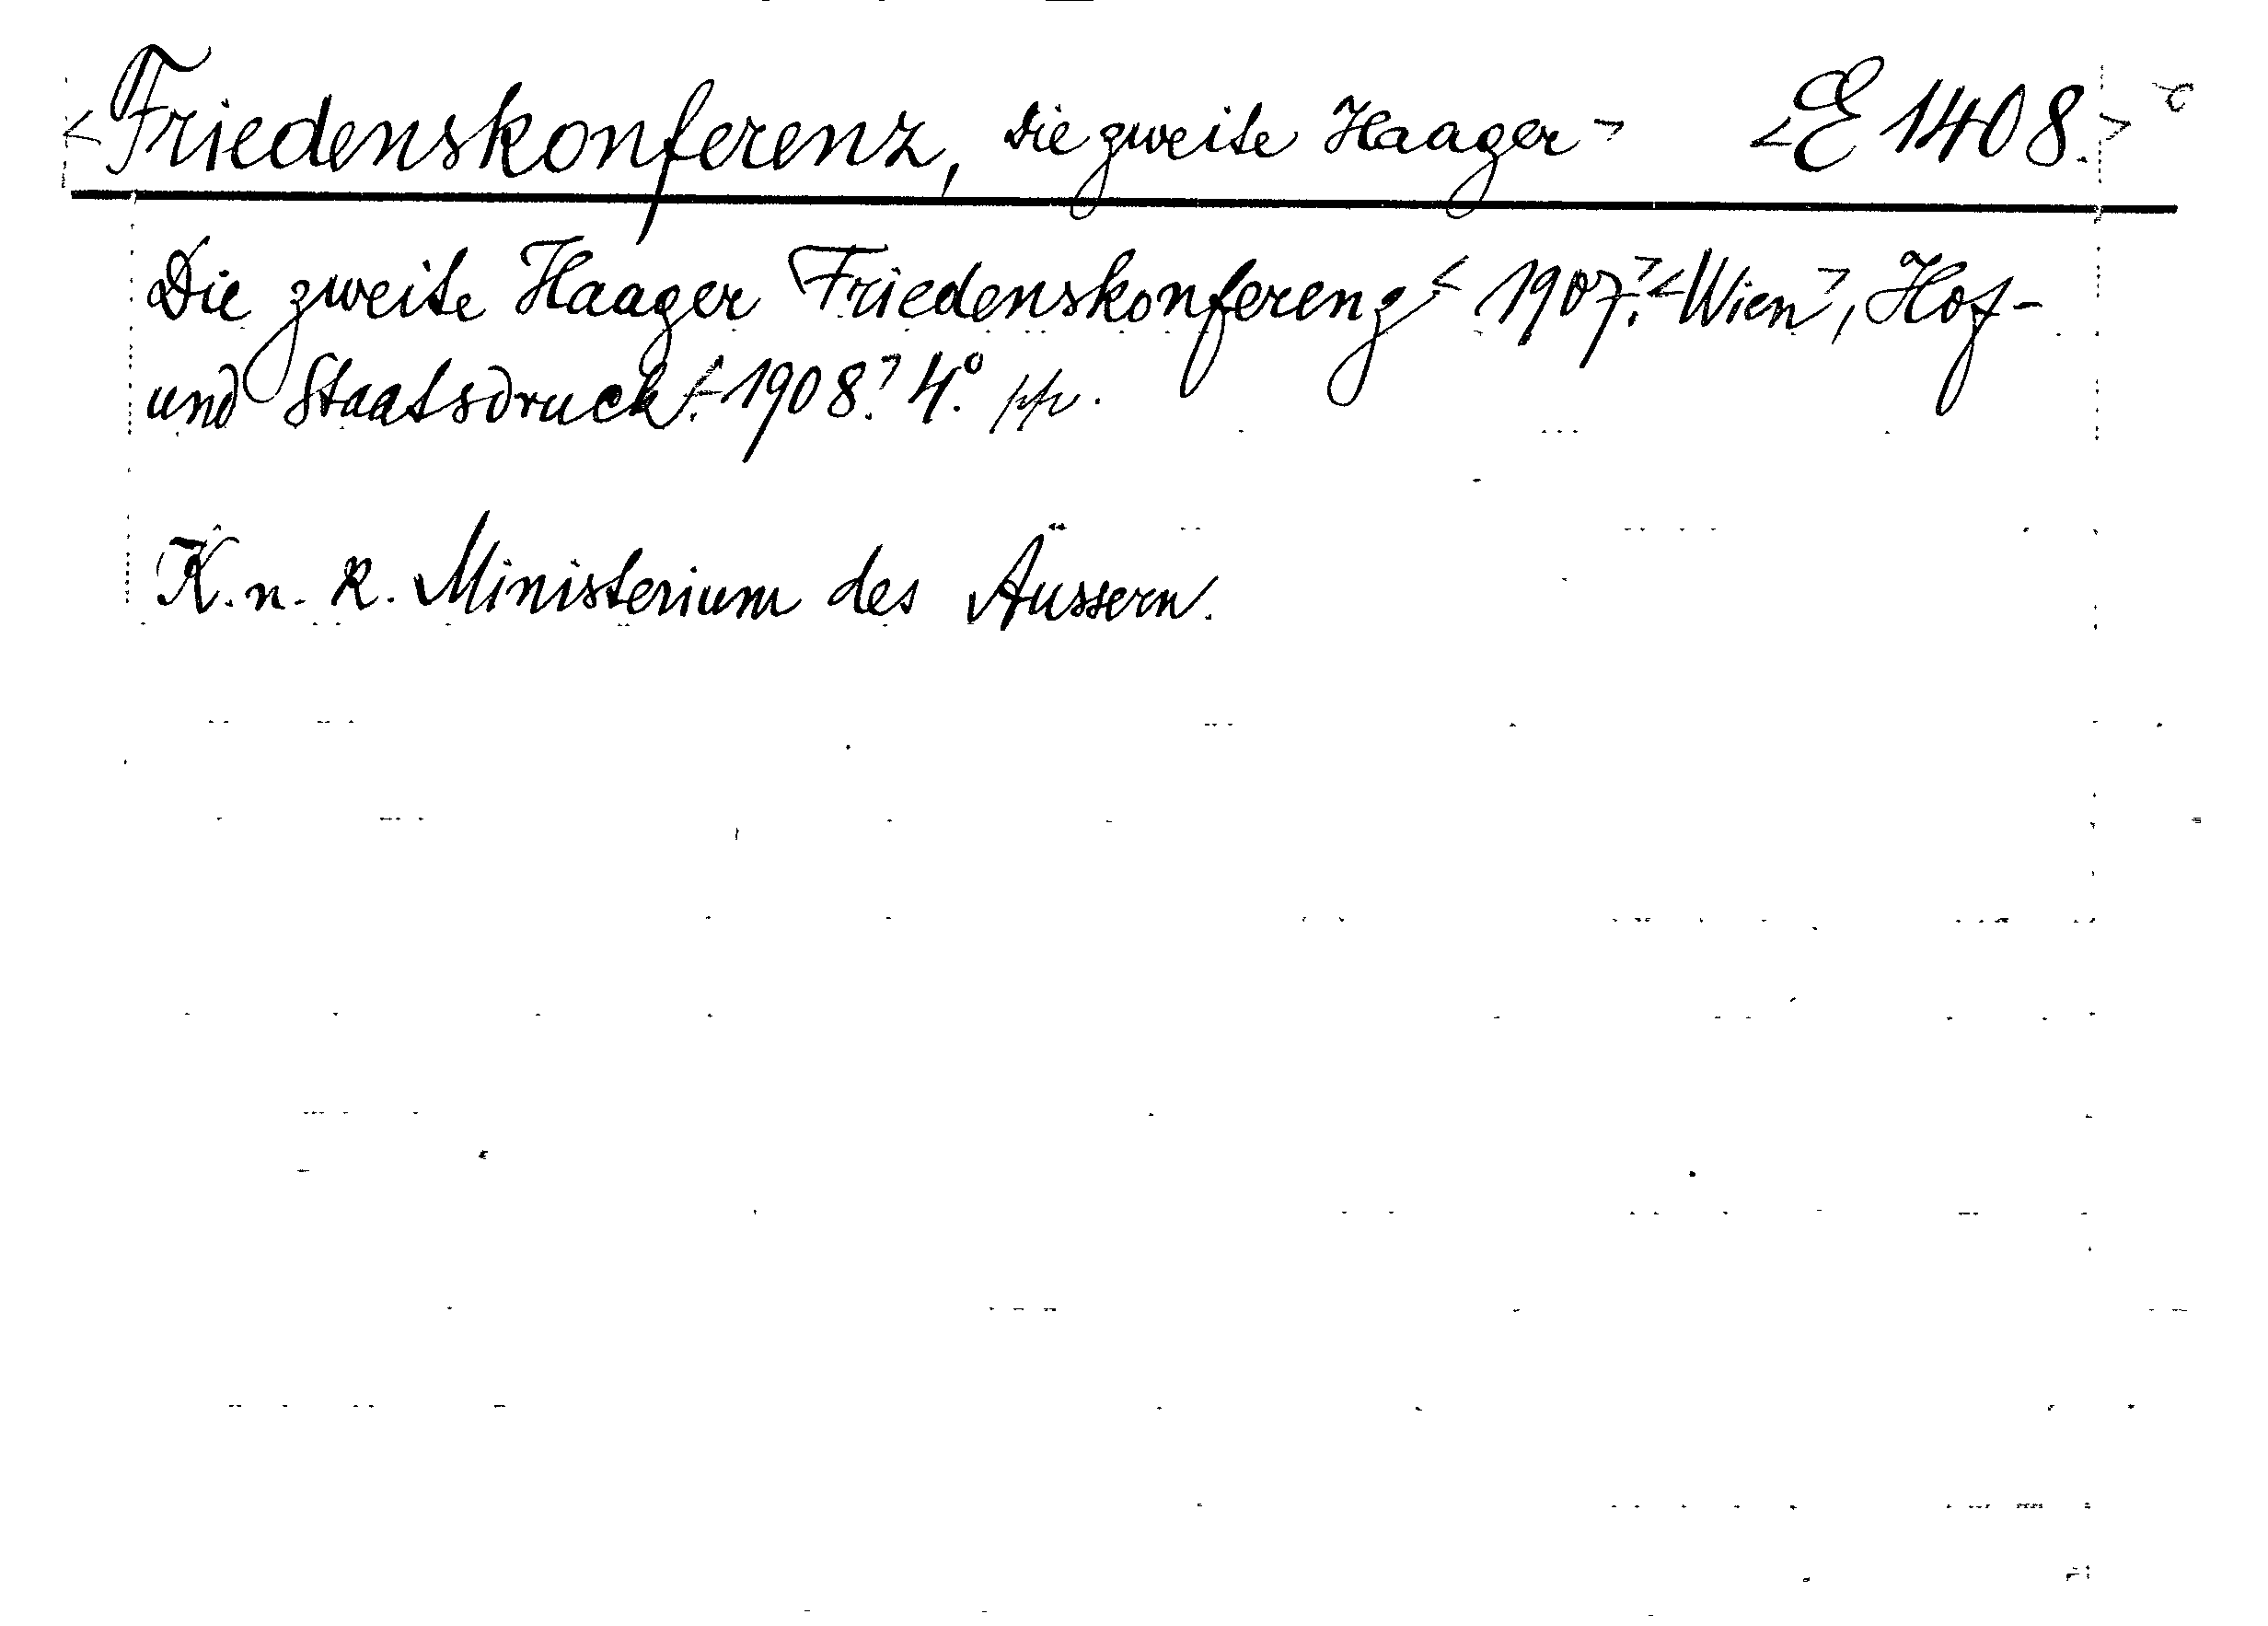 <Friedenskonferenz, Die zweite Haager> <E 1408.>
Die zweite Haager Friedenskonferenz< 1907.><Wien>, Hof-
und Staatsdruck.<1908.> 4.°
K. u. K. Ministerium des Äussern.